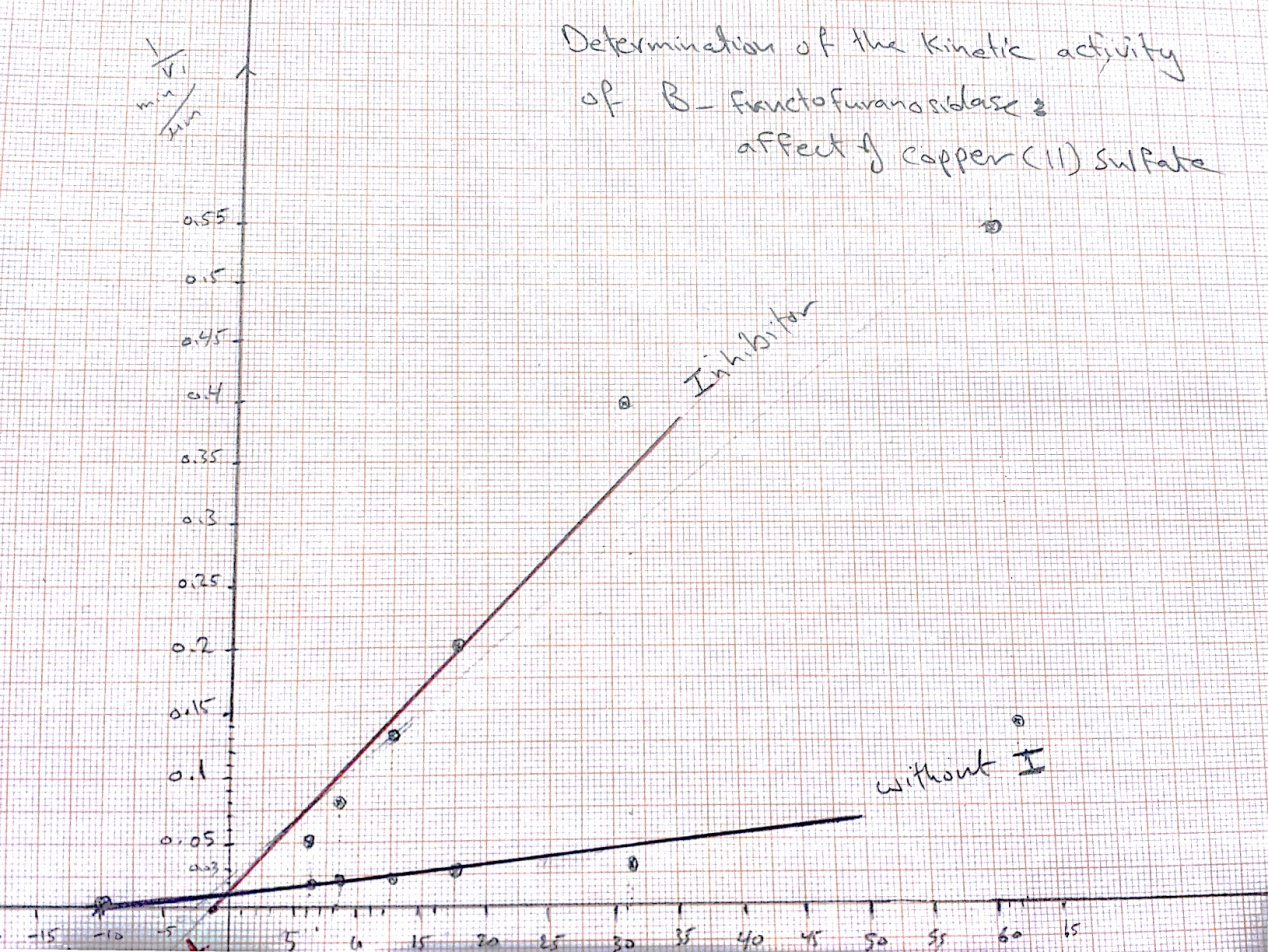 Determination of the Kinetic activity
of B- fructofuranosidase :
affect of copper (II) sulfate
1/Vi
min/μm
0.55
0.5
0.45
0.4
0.35
0.3
0.25
0.2
0.15
0.1
0.05
0.03
Inhibitor
without I
-15 -10 -5 5 10 15 20 25 30 35 40 45 50 55 60 65